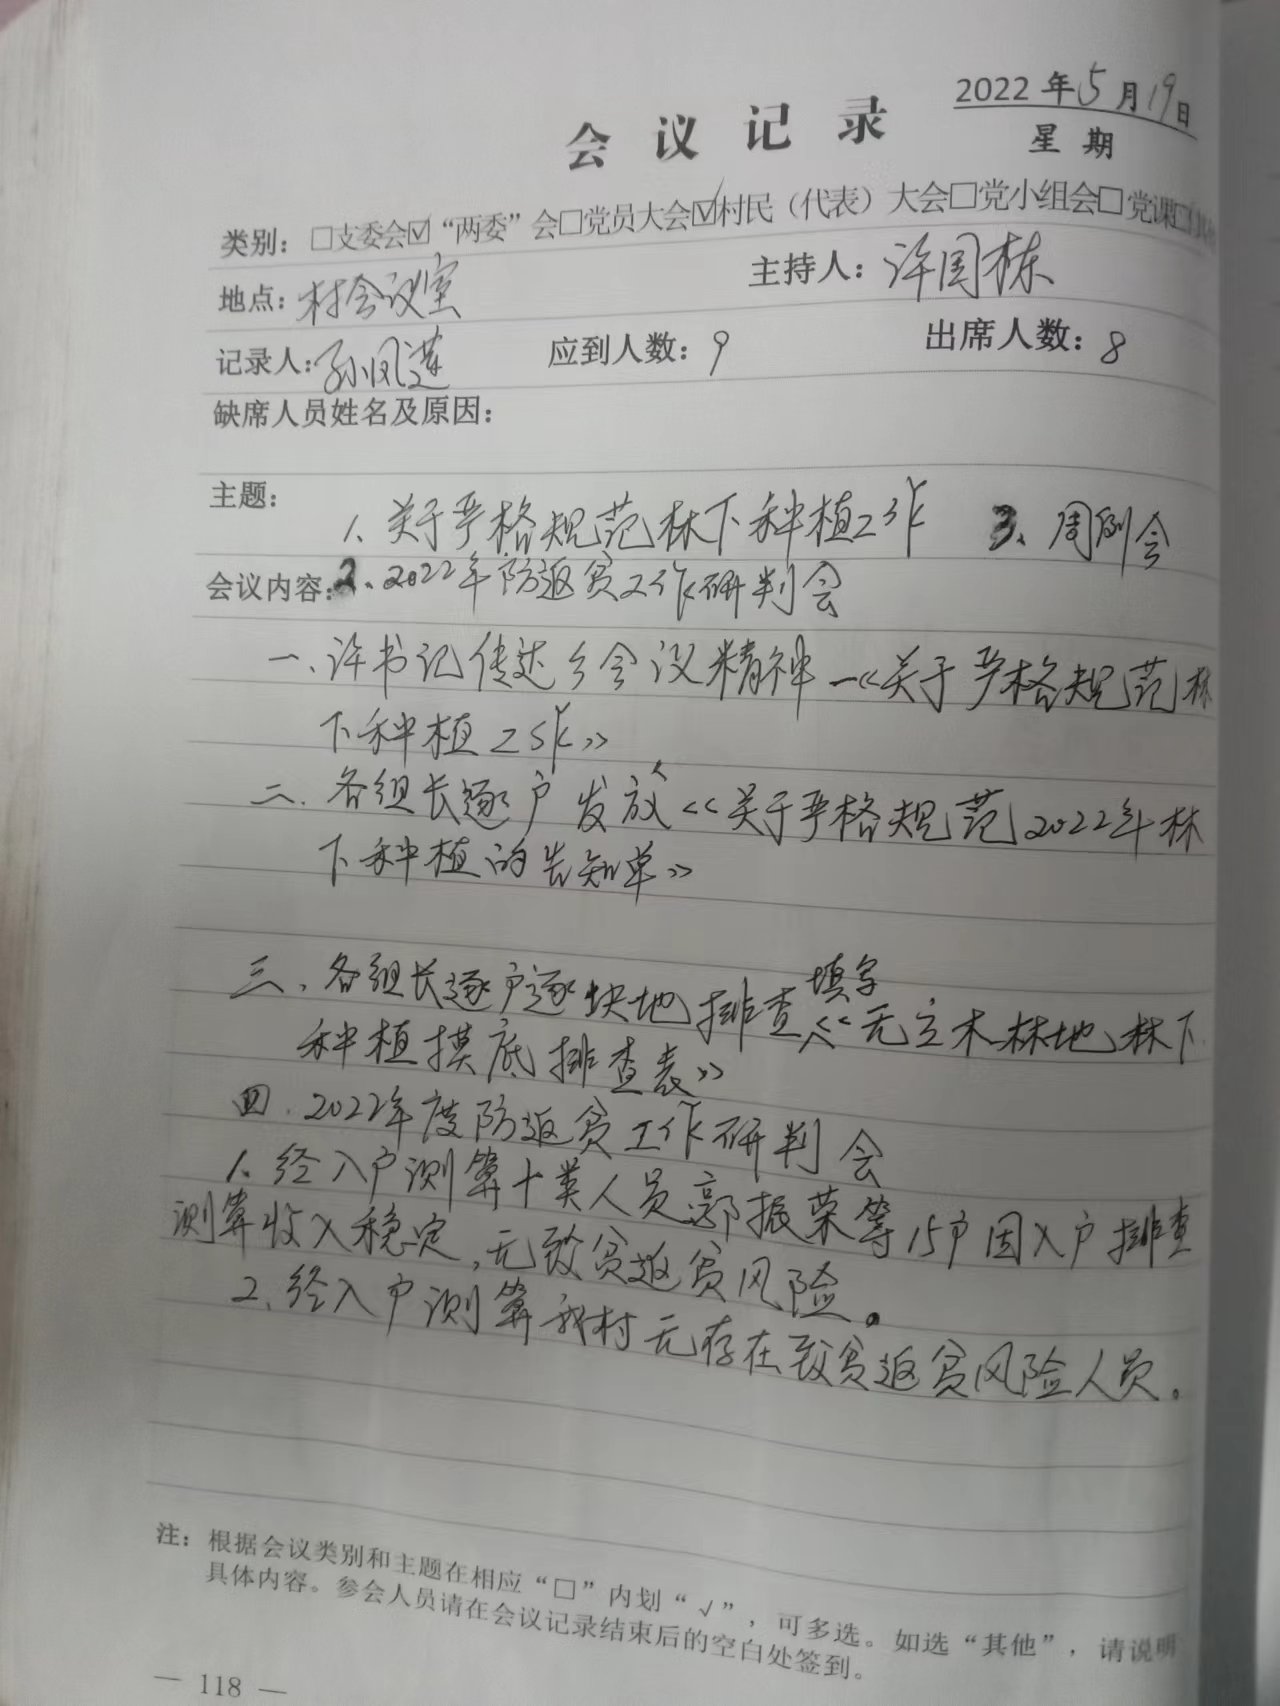 2022年5月19日
会议记录
星期
类别：□支委会☑“两委”会□党员大会☑村民（代表）大会□党小组会□党课□其
地点：村会议室 主持人：许国栋
记录人：孙凤莲 应到人数：9 出席人数：8
缺席人员姓名及原因：
主题：
1、关于严格规范林下种植工作 3、周例会
会议内容：2、2022年防返贫工作研判会
一、许书记传达乡会议精神—《关于严格规范林
下种植工作》
二、各组长逐户发放《关于严格规范2022年林
下种植的告知单》
三、各组长逐户逐块地排查填写《无立木林地林下
种植摸底排查表》
四.2022年度防返贫工作研判会
1、经入户测算十类人员郭振荣等15户因入户排查
测算收入稳定，无致贫返贫风险。
2、经入户测算我村无存在致贫返贫风险人员。
注：根据会议类别和主题在相应“□”内划“√”，可多选。如选“其他”，请说明
具体内容。参会人员请在会议记录结束后的空白处签到。
— 118 —